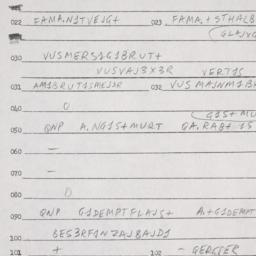 022 FAMA.N1TVEJG+ 023 FAMA.+STHALB
030 VUSMERS1G1BRUT+
VUSVAJ3X3R VERT1S
031 AM1BRUT1SMEJ3R 032 VUS MAJNM1B
040 O
G1S+MU
050 QNP A.NG1S+MURT QA.RAB+ 15
060 –
070 –
080 O
090 QNP G1DEMPTFLAJS+ A.+G1DEMPT
100 BES3RF1NZAJBAJD1
101 + 102 – GERGTER